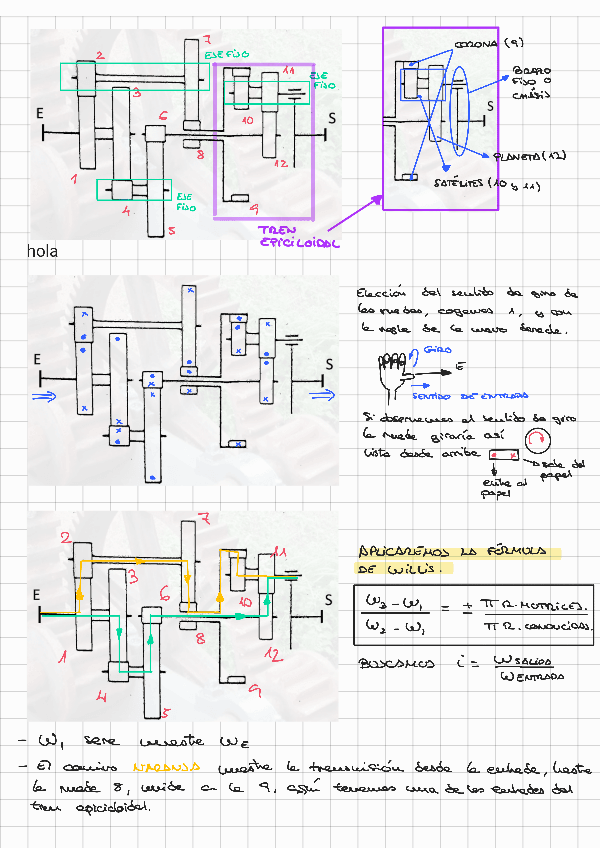 7
2
EJE FIJO
11
EJE FIJO
3
6
10
E
S
8
12
1
4
EJE FIJO
9
5
TREN
EPICICLOIDAL
CORONA (9)
BRAZO
FIJO O
CHASIS
S
PLANETA (12)
SATÉLITES (10 y 11)
hola
E
S
Elección del sentido de giro de
las ruedas, cogemos 1, y con
la regla de la mano derecha.
GIRO
E
SENTIDO DE ENTRADA
Si observamos el sentido de giro
la rueda giraría así
vista desde arriba
sale del
papel
entra al
papel
7
2
11
3
6
E
S
10
8
1
12
4
9
5
APLICAREMOS LA FÓRMULA
DE WILLIS.
ω3 - ω1 / ω2 - ω1 = ± π R. MOTRICES. / π R. CONDUCIDAS.
BUSCAMOS i = ω SALIDA / ω ENTRADA
- ω1 será nuestra ωE
- El camino NARANJA muestra la transmisión desde la entrada, hasta
la rueda 8, unida a la 9, así tenemos una de las entradas del
tren epicicloidal.